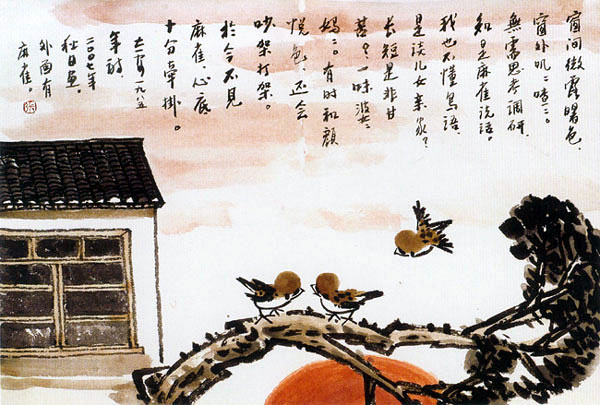 窗间微露曙色
窗外叽二喳二。
無需思考调研
知是麻雀说话。
我也不懂鸟语、
是谈儿女亲家？
长短是非甘
苦？一味婆二
媽二。有时和顏
悦色、还会
吵架打架。
於今不見
麻雀、心底
十分牽掛。
一九八五
年
二〇〇七年
秋日画。
外面有
麻雀。